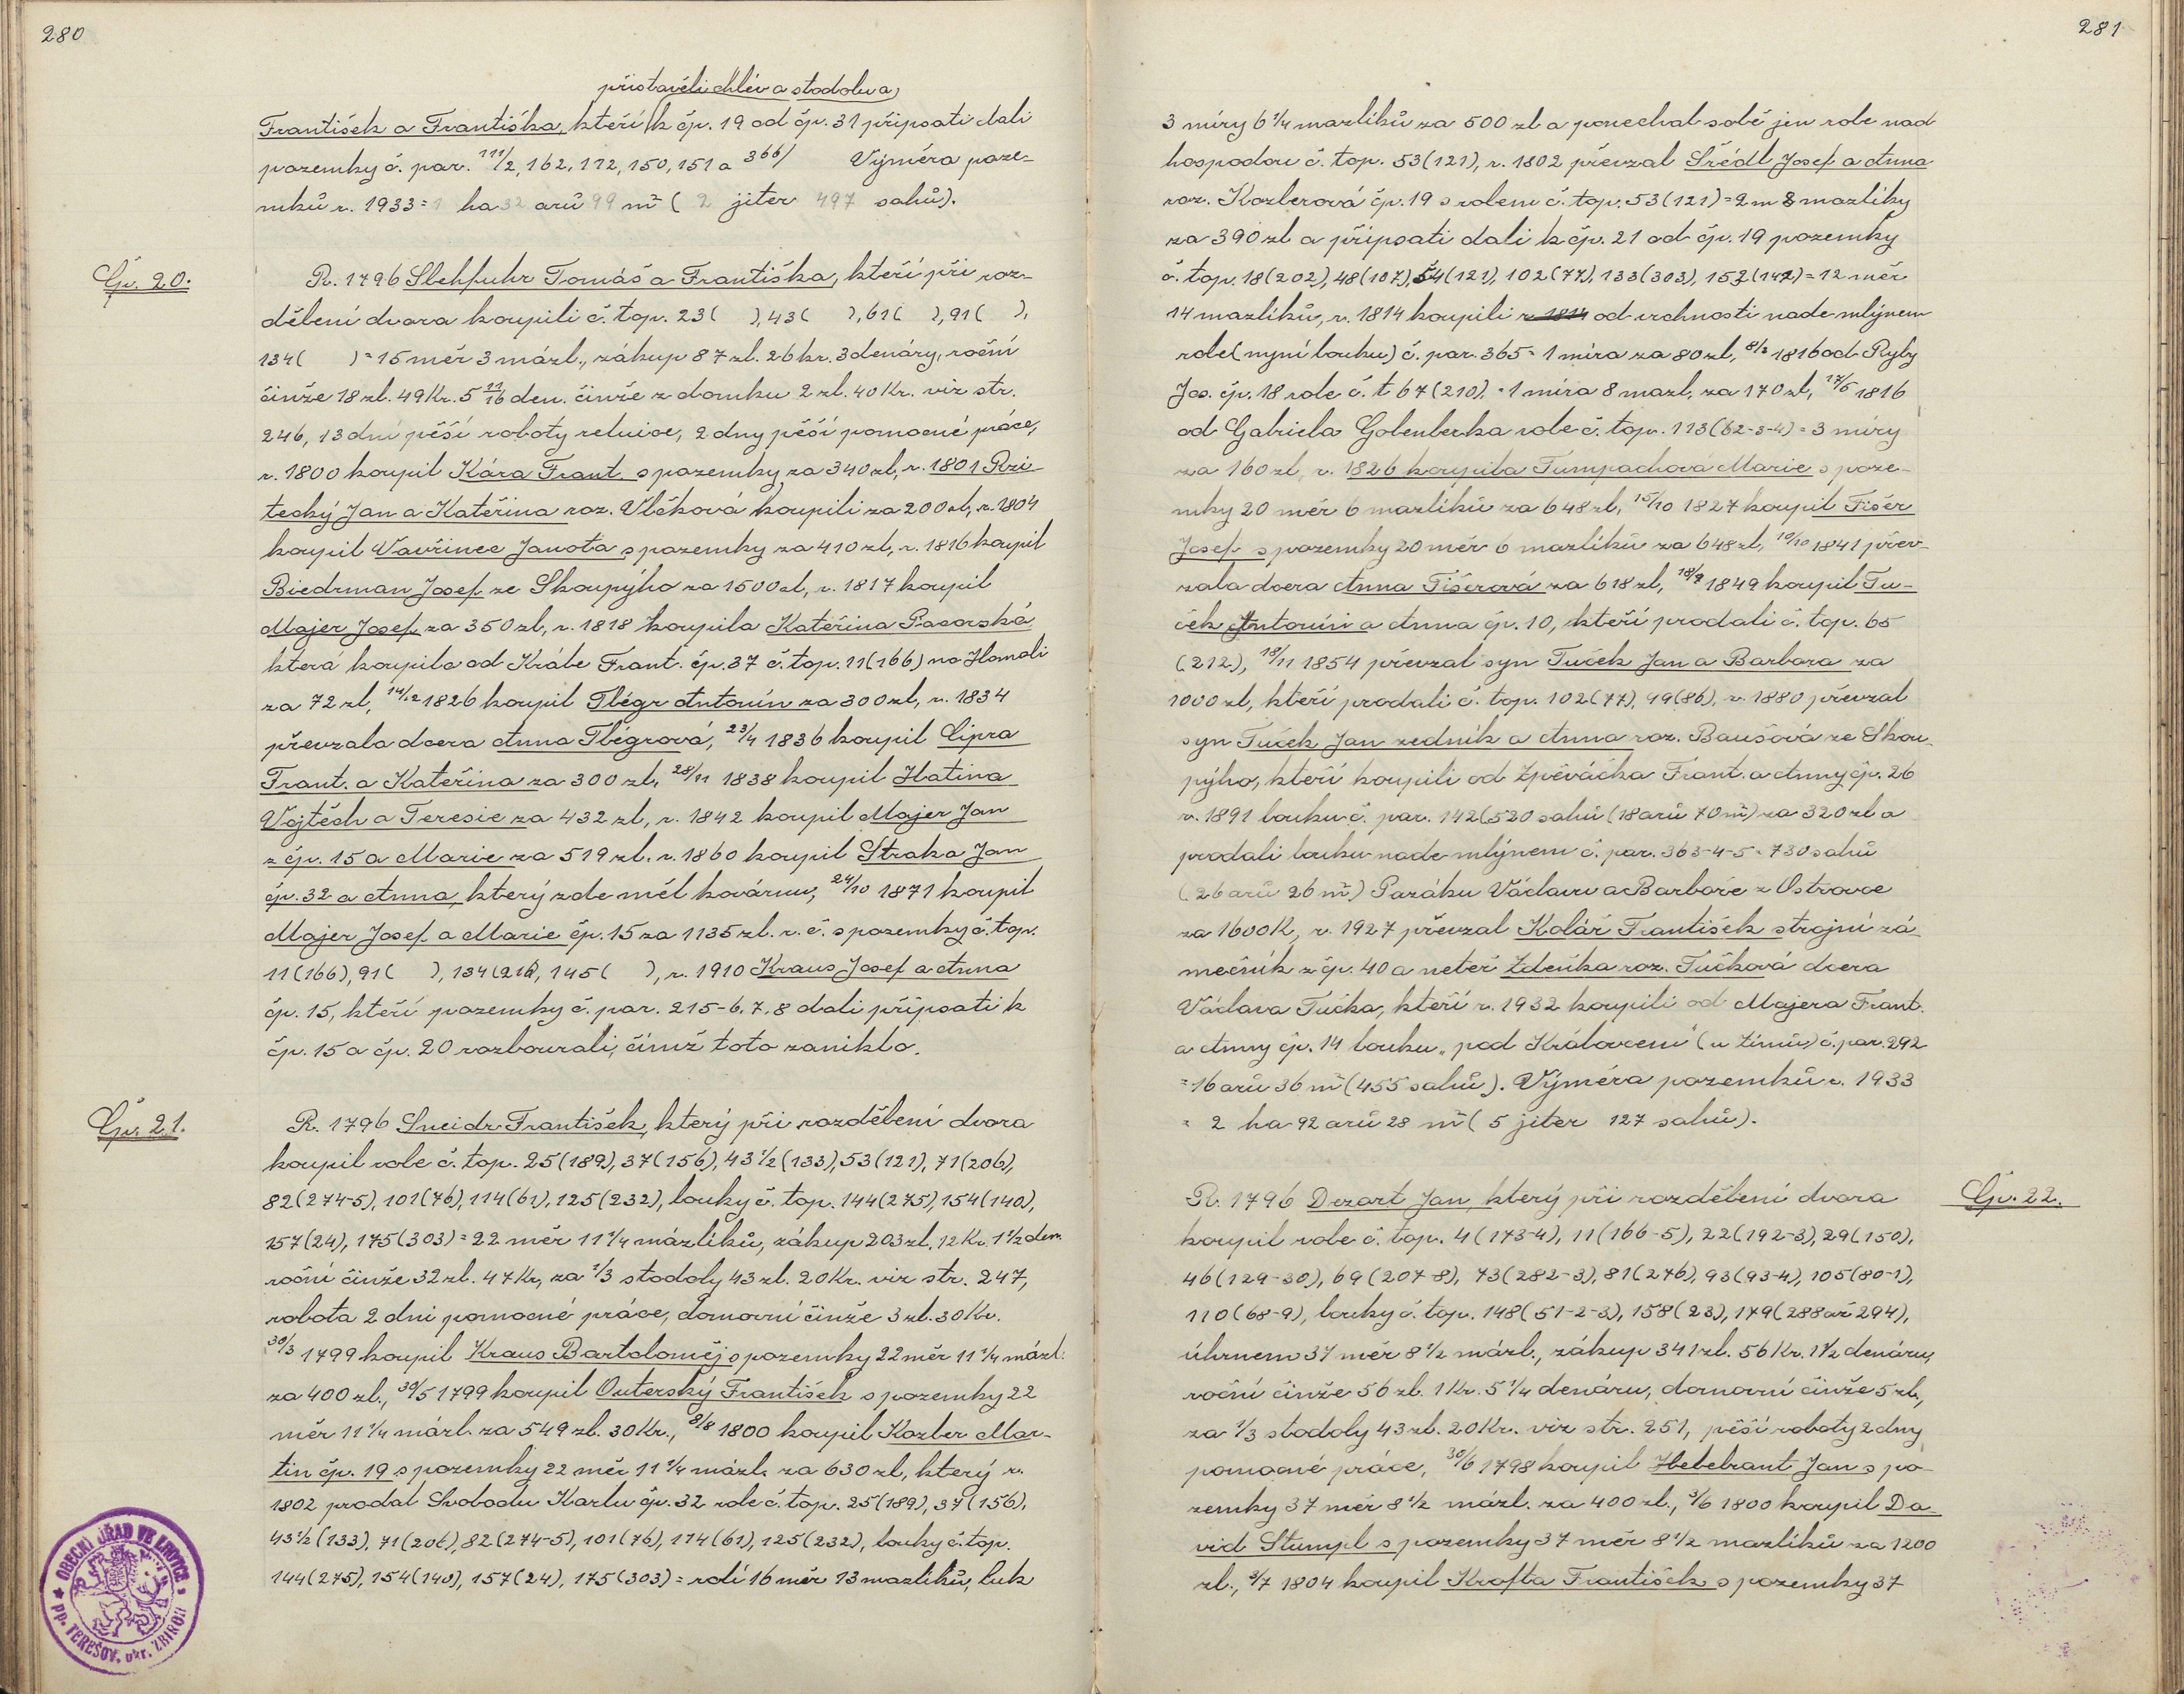 280
přistavěli chlév a stodolu a
František a Františka, kteří k čp. 19 od čp. 31 připsati dali
pozemky č. par. 111/2, 162, 172, 150, 151 a 366/ Výměra poze-
mků r. 1933 = 1 ha 32 arů 99 m² ( 2 jiter 497 sahů).
Čp. 20.
R. 1796 Slehfuhr Tomáš a Františka, kteří při roz-
dělení dvora koupili č. top. 23( ), 43( ), 61( ), 91( ),
134( ) = 15 měr 3 mázl., zákup 87 zl. 26 kr. 3 denáry, roční
činže 18 zl. 49 Kr. 5 11/16 den. činže z domku 2 zl. 40 Kr. viz str.
246, 13 dní pěší roboty reluice, 2 dny pěší pomocné práce,
r. 1800 koupil Kára Frant. s pozemky za 340 zl, r. 1801 Rzi-
tecký Jan a Kateřina roz. Vlčková koupili za 200 zl, r. 1804
koupil Vavřinec Janota s pozemky za 410 zl, r. 1816 koupil
Biedrman Josef ze Skoupýho za 1500 zl, r. 1817 koupil
Majer Josef za 350 zl, r. 1818 koupila Kateřina Pacorská
která koupila od Krále Frant. čp. 37 č. top. 11(166) na Homoli
za 72 zl, 14/12 1826 koupil Tlégr Antonín za 300 zl, r. 1834
převzala dcera Anna Tlégrová, 23/4 1836 koupil Lipra
Frant. a Kateřina za 300 zl, 28/11 1838 koupil Hatina
Vojtěch a Teresie za 432 zl, r. 1842 koupil Majer Jan
z čp. 15 a Marie za 519 zl. r. 1860 koupil Straka Jan
čp. 32 a Anna, který zde měl kovárnu, 24/10 1871 koupil
Majer Josef a Marie čp. 15 za 1135 zl. r. č. s pozemky č. top.
11(166), 91( ), 134(216), 145( ), r. 1910 Kraus Josef a Anna
čp. 15, kteří pozemky č. par. 215-6, 7, 8 dali připsati k
čp. 15 a čp. 20 rozbourali, čímž toto zaniklo.
Čp. 21.
R. 1796 Sneidr František, který při rozdělení dvora
koupil role č. top. 25(189), 37(156), 43 1/2(133), 53(121), 71(206),
82(274-5), 101(76), 114(61), 125(232), louky č. top. 144(275), 154(140),
157(24), 175(303) = 22 měr 11 1/4 mázlíků, zákup 203 zl. 12 Kr. 1 1/2 den.
roční činže 32 zl. 47 Kr, za 1/3 stodoly 43 zl. 20 Kr. viz str. 247,
robota 2 dni pomocné práce, domovní činže 3 zl. 30 Kr.
30/3 1799 koupil Kraus Bartoloměj s pozemky 22 měr 11 1/4 mázl.
za 400 zl., 30/5 1799 koupil Outerský František s pozemky 22
měr 11 1/4 mázl. za 549 zl. 30 Kr., 8/8 1800 koupil Kozler Mar-
tin čp. 19 s pozemky 22 měr 11 1/4 mázl. za 630 zl, který r.
1802 prodal Svobodu Karlu čp. 32 role č. top. 25(189), 37(156),
43 1/2(133), 71(206), 82(274-5), 101(76), 114(61), 125(232), louky č. top.
144(275), 154(140), 157(24), 175(303) = rolí 16 měr 13 mazlíků, luk
OBECNÍ ÚŘAD VE LHOTCE
pp. TEREŠOV, okr. ZBIROH
281
3 míry 6 1/4 mazlíků za 500 zl a ponechal sobě jen role nad
hospodou č. top. 53(121), r. 1802 převzal Srédl Josef a Anna
roz. Kozlerová čp. 19 s rolem č. top. 53(121) = 2 m 8 mazlíky
za 390 zl a připsati dali k čp. 21 od čp. 19 pozemky
č. top. 18(202), 48(107), 54(121), 102(77), 133(303), 152(142) = 12 měr
14 mazlíků, r. 1814 koupili r. 1814 od vrchnosti nade mlýnem
role (nyní louku) č. par. 365 = 1 míra za 80 zl, 8/2 1816 od Ryby
Jos. čp. 18 role č. t 67(210) = 1 míra 8 mazl. za 170 zl, 17/5 1816
od Gabriela Golenberka role č. top. 113(62-3-4) = 3 míry
za 160 zl, r. 1826 koupila Tumpachová Marie s poze-
mky 20 měr 6 mazlíků za 648 zl, 15/10 1827 koupil Fišér
Josef s pozemky 20 měr 6 mazlíků za 648 zl, 10/10 1841 přev-
zala dcera Anna Fišerová za 618 zl, 18/9 1849 koupil Tu-
ček Antonín a Anna čp. 10, kteří prodali č. top. 65
(212), 18/11 1854 převzal syn Tuček Jan a Barbora za
1000 zl, kteří prodali č. top. 102(77), 99(86), r. 1880 převzal
syn Tuček Jan zedník a Anna roz. Baušová ze Skou-
pýho, kteří koupili od Zpěváčka Frant. a Anny čp. 26
r. 1891 louku č. par. 142(520 sahů (18 arů 70 m²) za 320 zl a
prodali louku nade mlýnem č. par. 363-4-5 = 730 sahů
(26 arů 26 m²) Pazáku Václavu a Barboře z Ostrovce
za 1600 K, r. 1927 převzal Kolář František strojní zá-
mečník z čp. 40 a neteř Zdeňka roz. Tučková dcera
Václava Tučka, kteří r. 1932 koupili od Majera Frant.
a Anny čp. 14 louku „pod Královcem“ (u Límů) č. par. 292
= 16 arů 36 m² (455 sahů). Výměra pozemků r. 1933
= 2 ha 92 arů 28 m² ( 5 jiter 127 sahů).
Čp. 22.
R. 1796 Dezort Jan, který při rozdělení dvora
koupil role č. top. 4(173-4), 11(166-5), 22(192-3), 29(150),
46(129-30), 69(207-8), 73(282-3), 81(276), 93(93-4), 105(80-1),
110(68-9), louky č. top. 148(51-2-3), 158(23), 179(288 až 294),
úhrnem 37 měr 8 1/2 mázl., zákup 341 zl. 56 Kr. 1 1/2 denáru,
roční činže 56 zl. 1 Kr. 5 1/4 denáru, domovní činže 5 zl.,
za 1/3 stodoly 43 zl. 20 Kr. viz str. 251, pěší roboty 2 dny
pomocné práce, 30/6 1798 koupil Hebebrant Jan s po-
zemky 37 měr 8 1/2 mázl. za 400 zl., 3/6 1800 koupil Da-
vid Stumpl s pozemky 37 měr 8 1/2 mazlíků za 1200
zl., 3/7 1804 koupil Krofta František s pozemky 37